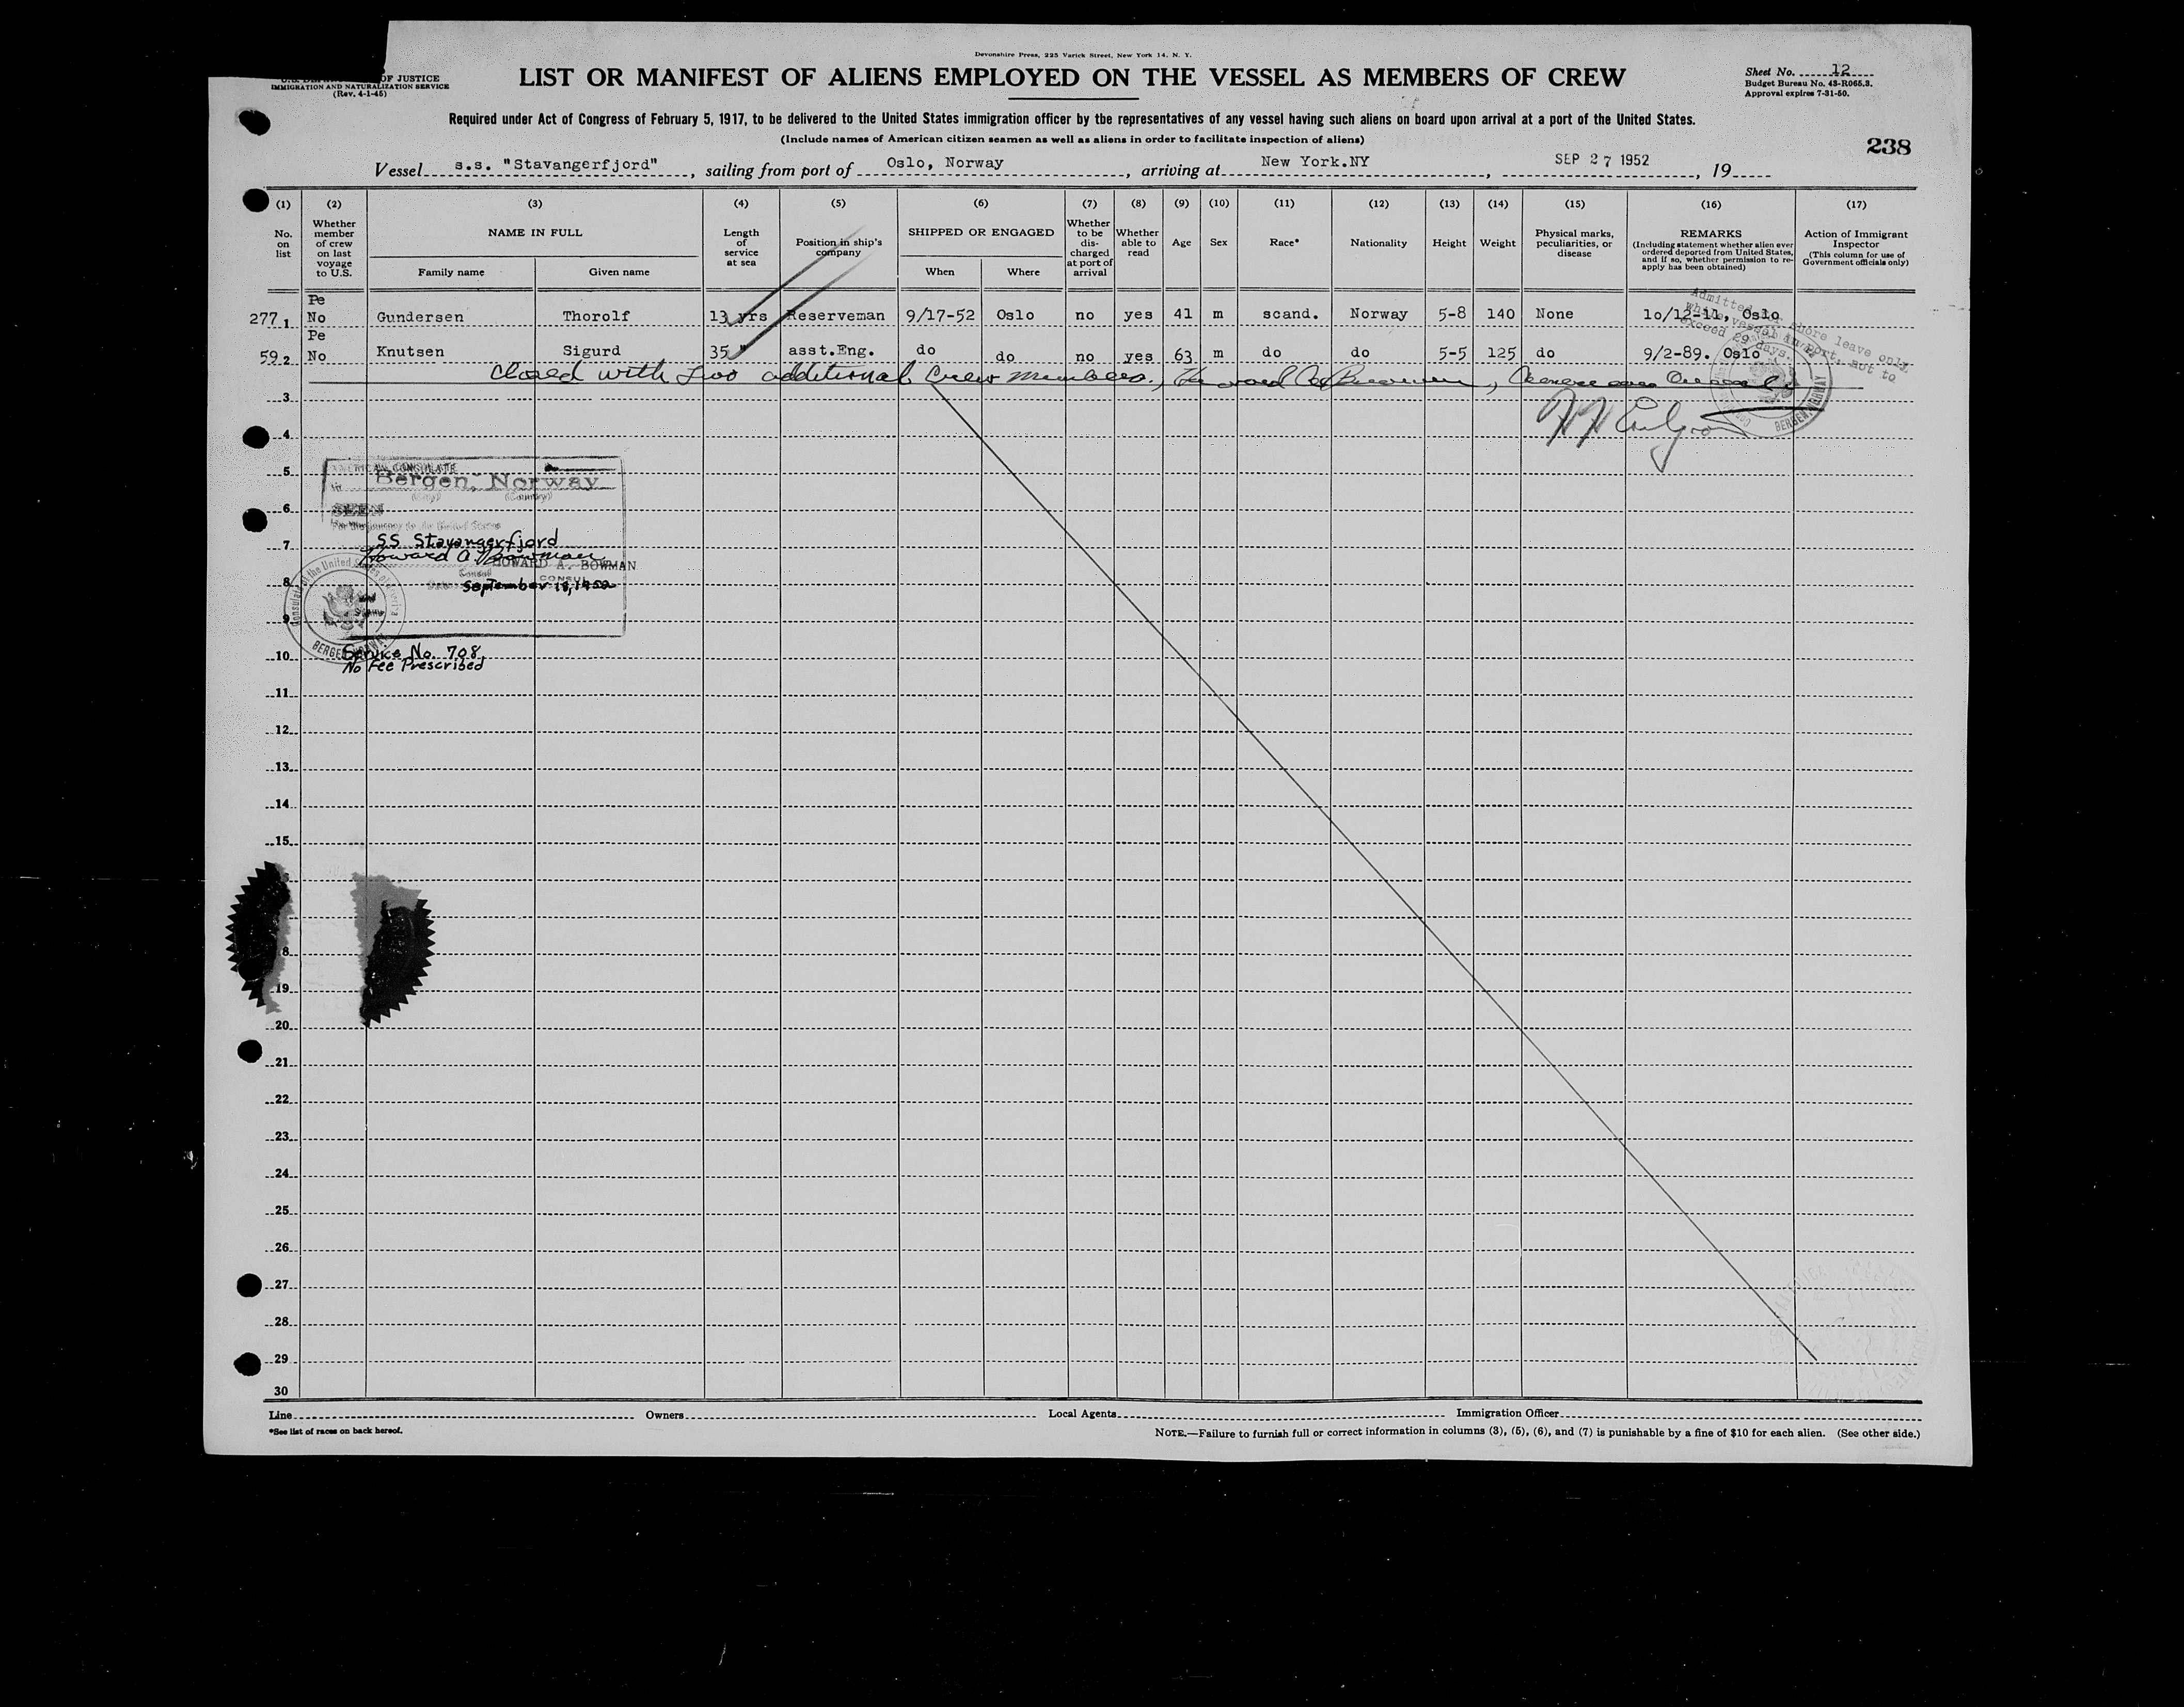 Devonshire Press, 225 Varick Street, New York 14, N. Y.
OF JUSTICE
IMMIGRATION AND NATURALIZATION SERVICE
(Rev. 4-1-45)
LIST OR MANIFEST OF ALIENS EMPLOYED ON THE VESSEL AS MEMBERS OF CREW
Sheet No. 12
Budget Bureau No. 43-R065.3.
Approval expires 7-31-50.
Required under Act of Congress of February 5, 1917, to be delivered to the United States immigration officer by the representatives of any vessel having such aliens on board upon arrival at a port of the United States.
(Include names of American citizen seamen as well as aliens in order to facilitate inspection of aliens)
238
Vessel s.s. "Stavangerfjord", sailing from port of Oslo, Norway, arriving at New York.NY, SEP 27 1952, 19
(1) (2) (3) (4) (5) (6) (7) (8) (9) (10) (11) (12) (13) (14) (15) (16) (17)
No. on list
Whether member of crew on last voyage to U.S.
NAME IN FULL
Family name
Given name
Length of service at sea
Position in ship's company
SHIPPED OR ENGAGED
When
Where
Whether to be discharged at port of arrival
Whether able to read
Age
Sex
Race*
Nationality
Height
Weight
Physical marks, peculiarities, or disease
REMARKS
(Including statement whether alien ever ordered deported from United States, and if so, whether permission to re-apply has been obtained)
Action of Immigrant Inspector
(This column for use of Government officials only)
Pe
277 1 No Gundersen Thorolf 13 yrs Reserveman 9/17-52 Oslo no yes 41 m scand. Norway 5-8 140 None 10/12-11, Oslo
Pe
59 2 No Knutsen Sigurd 35 " asst.Eng. do do no yes 63 m do do 5-5 125 do 9/2-89. Oslo
Admitted for shore leave only
while vessel in port, not to
exceed 29 days.
Closed with two additional crew members, Howard A. Bowman, American Consul
BERGEN, NORWAY
3
4
5
AMERICAN CONSULATE
Bergen, Norway
(City) (Country)
6
SEEN
For the journey to the United States
7
SS Stavangerfjord
Howard A. Bowman
HOWARD A. BOWMAN
Consul
CONSUL
8
September 18, 1952
Consulate of the United States of America
9
10
Service No. 708
No Fee Prescribed
11
12
13
14
15
8
19
20
21
22
23
24
25
26
27
28
29
30
Line Owners Local Agents Immigration Officer
*See list of races on back hereof.
NOTE.—Failure to furnish full or correct information in columns (3), (5), (6), and (7) is punishable by a fine of $10 for each alien. (See other side.)